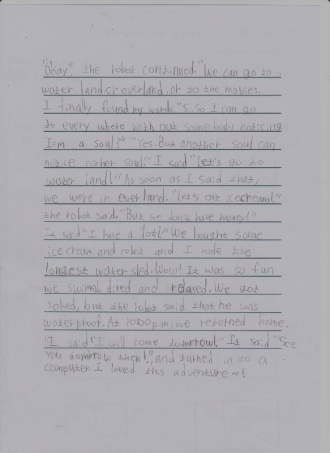 "Okay" the robot continued. "We can go to
water land, or everland, or to the movies.
I finally found my words "S..So I can go
to every where with out somebody noticing
I'm a soul?" "Yes. But another soul can
notice other soul." I said "let's go to
water land!" As soon as I said that,
we were in everland. "Let's eat icecream!"
the robot said, "But we dont have money!"
It said "I have a lot!" We bought some
icecream and robot and I rode the
longest water sled. Wow! It was so fun
we swimed, dived and relaxed. We got
soked, but the robot said that he was
waterproof. At 10:00 p.m, we returned home.
"I said "I will come tomorrow!" It said "See
you tomorrow then!", and turned in to a
computer. I loved this adventure~!